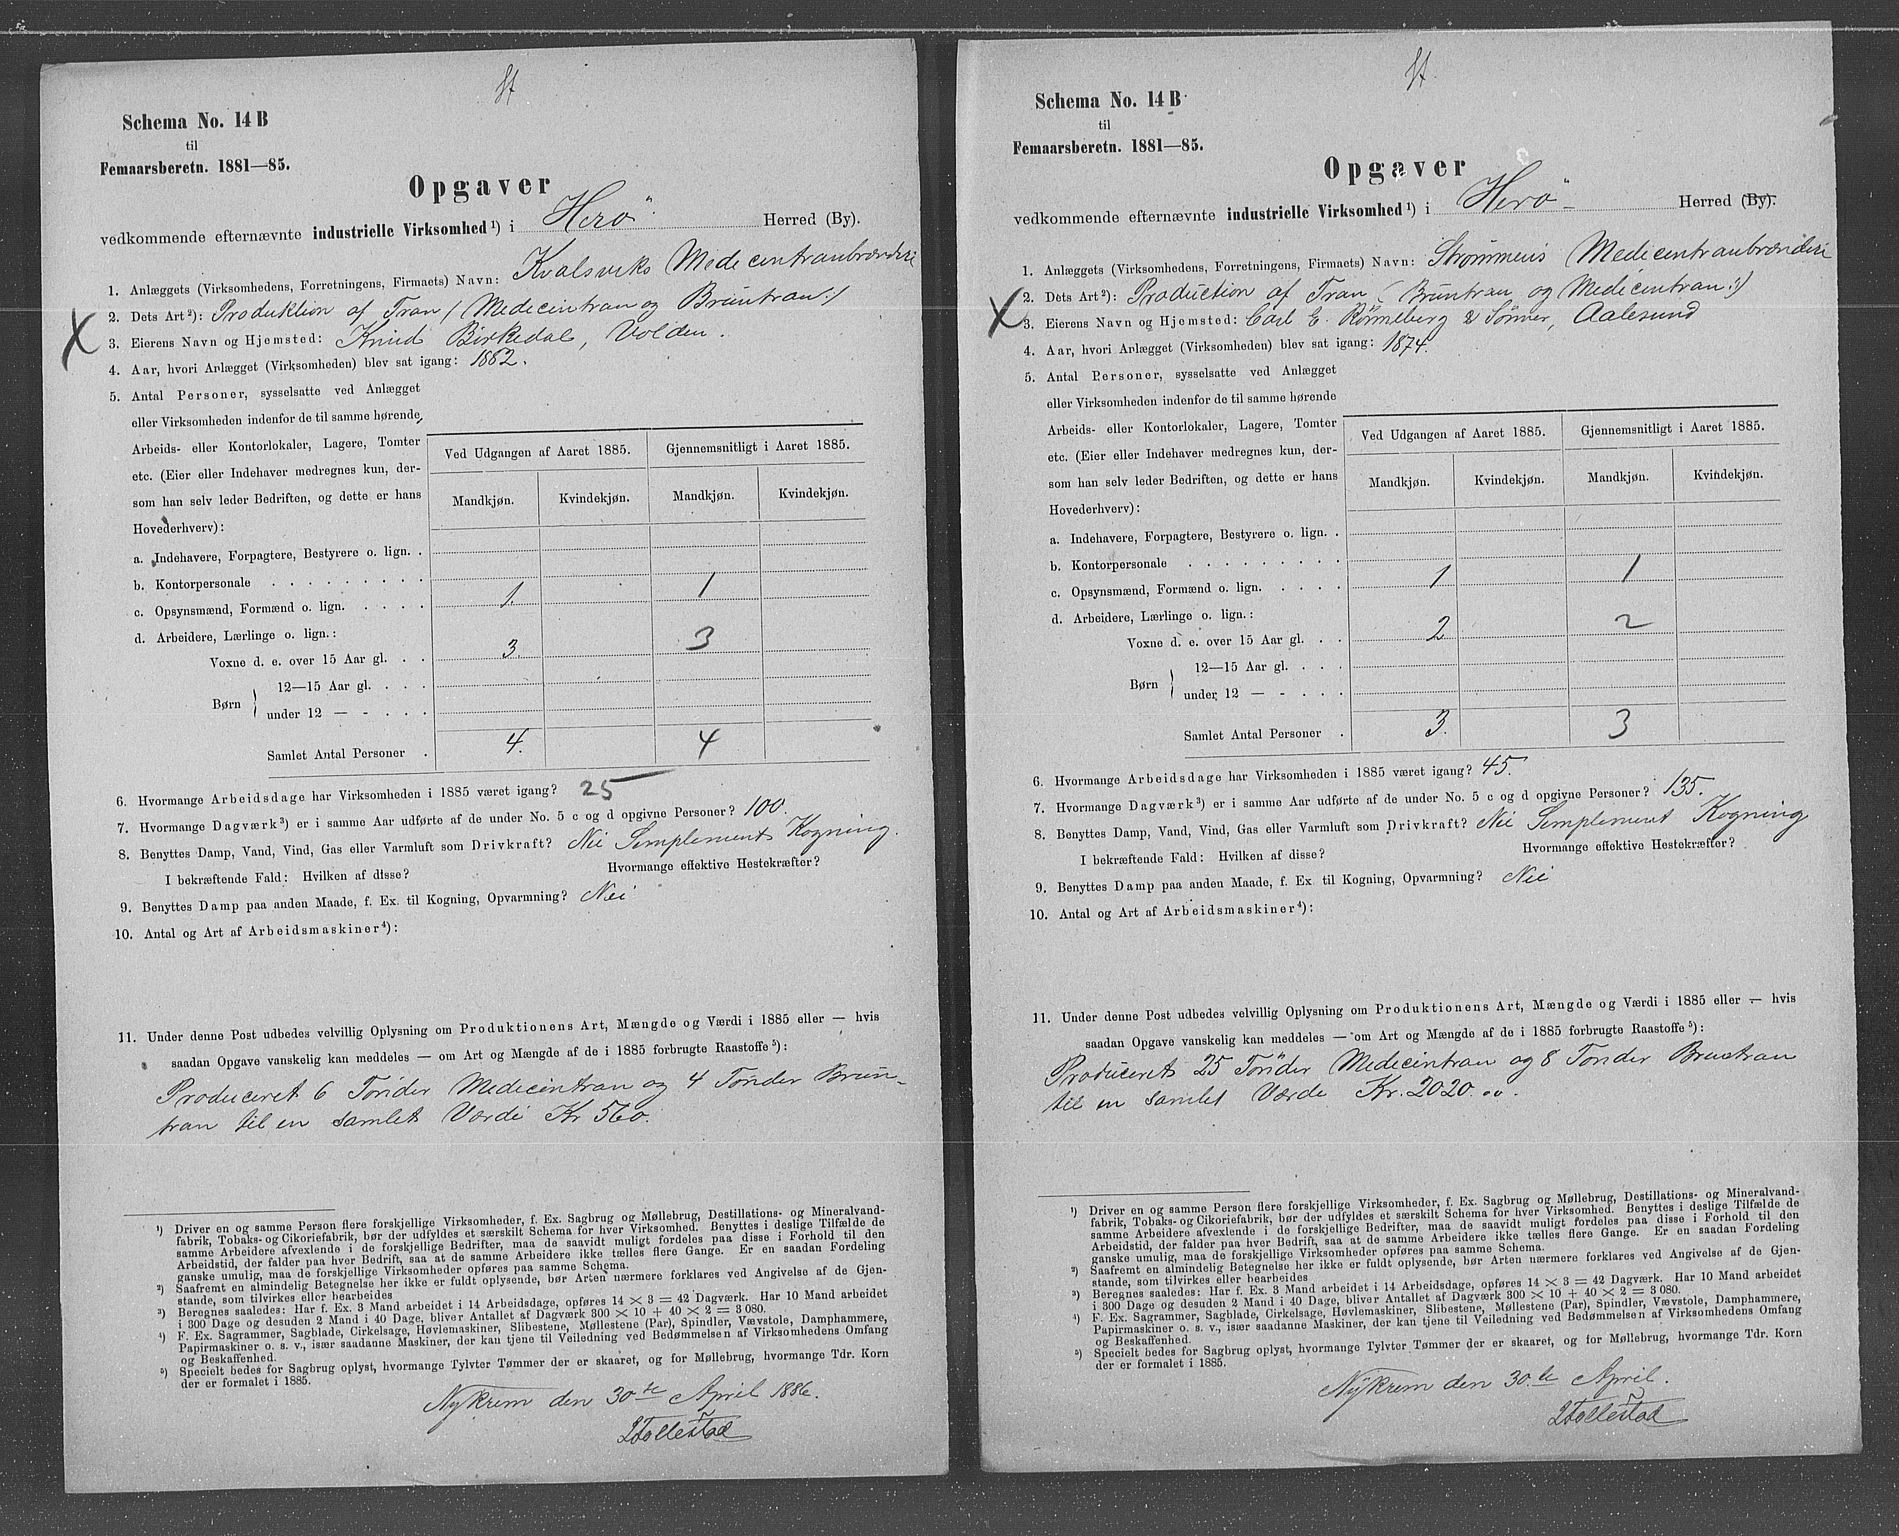 St
Schema No. 14 B
til
Femaarsberetn. 1881—85.
Opgaver
vedkommende efternævnte industrielle Virksomhed¹) i Herö Herred (By).
1. Anlæggets (Virksomhedens, Forretningens, Firmaets) Navn: Kvalsviks Medecintranbrænderi
2. Dets Art²): Produktion af Tran (Medecintran og Bruntran:)
3. Eierens Navn og Hjemsted: Knud Birkedal, Volden.
4. Aar, hvori Anlægget (Virksomheden) blev sat igang: 1882.
5. Antal Personer, sysselsatte ved Anlægget
eller Virksomheden indenfor de til samme hørende
Arbeids- eller Kontorlokaler, Lagere, Tomter
etc. (Eier eller Indehaver medregnes kun, der-
som han selv leder Bedriften, og dette er hans
Hovederhverv):
Ved Udgangen af Aaret 1885. Gjennemsnitligt i Aaret 1885.
Mandkjøn. Kvindekjøn. Mandkjøn. Kvindekjøn.
a. Indehavere, Forpagtere, Bestyrere o. lign. .
b. Kontorpersonale . . . . . . . . .
c. Opsynsmænd, Formænd o. lign. . . . . 1. 1
d. Arbeidere, Lærlinge o. lign.:
Voxne d. e. over 15 Aar gl. . . 3. 3
Børn 12—15 Aar gl. . . .
under 12 — - . . .
Samlet Antal Personer . 4. 4
6. Hvormange Arbeidsdage har Virksomheden i 1885 været igang? 25
7. Hvormange Dagværk³) er i samme Aar udførte af de under No. 5 c og d opgivne Personer? 100.
8. Benyttes Damp, Vand, Vind, Gas eller Varmluft som Drivkraft? Nei Simplement Kogning.
I bekræftende Fald: Hvilken af disse? Hvormange effektive Hestekræfter?
9. Benyttes Damp paa anden Maade, f. Ex. til Kogning, Opvarmning? Nei
10. Antal og Art af Arbeidsmaskiner⁴):
11. Under denne Post udbedes velvillig Oplysning om Produktionens Art, Mængde og Værdi i 1885 eller — hvis
saadan Opgave vanskelig kan meddeles — om Art og Mængde af de i 1885 forbrugte Raastoffe⁵):
Produceret 6 Tønder Medecintran og 4 Tønder Brun-
tran til en samlet Værdi Kr 560.
¹) Driver en og samme Person flere forskjellige Virksomheder, f. Ex. Sagbrug og Møllebrug, Destillations- og Mineralvand-
fabrik, Tobaks- og Cikoriefabrik, bør der udfyldes et særskilt Schema for hver Virksomhed. Benyttes i deslige Tilfælde de
samme Arbeidere afvexlende i de forskjellige Bedrifter, maa de saavidt muligt fordeles paa disse i Forhold til den
Arbeidstid, der falder paa hver Bedrift, saa at de samme Arbeidere ikke tælles flere Gange. Er en saadan Fordeling
ganske umulig, maa de forskjellige Virksomheder opføres paa samme Schema.
²) Saafremt en almindelig Betegnelse her ikke er fuldt oplysende, bør Arten nærmere forklares ved Angivelse af de Gjen-
stande, som tilvirkes eller bearbeides
³) Beregnes saaledes: Har f. Ex. 3 Mand arbeidet i 14 Arbeidsdage, opføres 14 × 3 = 42 Dagværk. Har 10 Mand arbeidet
i 300 Dage og desuden 2 Mand i 40 Dage, bliver Antallet af Dagværk 300 × 10 + 40 × 2 = 3 080.
⁴) F. Ex. Sagrammer, Sagblade, Cirkelsage, Høvlemaskiner, Slibestene, Møllestene (Par), Spindler, Vævstole, Damphammere,
Papirmaskiner o. s. v., især saadanne Maskiner, der kan tjene til Veiledning ved Bedømmelsen af Virksomhedens Omfang
og Beskaffenhed.
⁵) Specielt bedes for Sagbrug oplyst, hvormange Tylvter Tømmer der er skaaret, og for Møllebrug, hvormange Tdr. Korn
der er formalet i 1885.
Nykrem den 30te April 1886.
Tollestad
St.
Schema No. 14 B
til
Femaarsberetn. 1881—85.
Opgaver
vedkommende efternævnte industrielle Virksomhed¹) i Herö Herred (By).
1. Anlæggets (Virksomhedens, Forretningens, Firmaets) Navn: Strømmens Medecintranbrænderi
2. Dets Art²): Production af Tran (Bruntran og Medecintran:)
3. Eierens Navn og Hjemsted: Carl E. Rönneberg & Sönner, Aalesund
4. Aar, hvori Anlægget (Virksomheden) blev sat igang: 1874.
5. Antal Personer, sysselsatte ved Anlægget
eller Virksomheden indenfor de til samme hørende
Arbeids- eller Kontorlokaler, Lagere, Tomter
etc. (Eier eller Indehaver medregnes kun, der-
som han selv leder Bedriften, og dette er hans
Hovederhverv):
Ved Udgangen af Aaret 1885. Gjennemsnitligt i Aaret 1885.
Mandkjøn. Kvindekjøn. Mandkjøn. Kvindekjøn.
a. Indehavere, Forpagtere, Bestyrere o. lign. .
b. Kontorpersonale . . . . . . . . .
c. Opsynsmænd, Formænd o. lign. . . . . 1 1
d. Arbeidere, Lærlinge o. lign.:
Voxne d. e. over 15 Aar gl. . . 2 2
Børn 12—15 Aar gl. . . .
under 12 — - . . .
Samlet Antal Personer . 3. 3
6. Hvormange Arbeidsdage har Virksomheden i 1885 været igang? 45.
7. Hvormange Dagværk³) er i samme Aar udførte af de under No. 5 c og d opgivne Personer? 135.
8. Benyttes Damp, Vand, Vind, Gas eller Varmluft som Drivkraft? Nei Simplement Kogning
I bekræftende Fald: Hvilken af disse? Hvormange effektive Hestekræfter?
9. Benyttes Damp paa anden Maade, f. Ex. til Kogning, Opvarmning? Nei
10. Antal og Art af Arbeidsmaskiner⁴):
11. Under denne Post udbedes velvillig Oplysning om Produktionens Art, Mængde og Værdi i 1885 eller — hvis
saadan Opgave vanskelig kan meddeles — om Art og Mængde af de i 1885 forbrugte Raastoffe⁵):
Produceret 25 Tönder Medecintran og 8 Tonder Bruntran
til en samlet Værde Kr. 2020.00.
¹) Driver en og samme Person flere forskjellige Virksomheder, f. Ex. Sagbrug og Møllebrug, Destillations- og Mineralvand-
fabrik, Tobaks- og Cikoriefabrik, bør der udfyldes et særskilt Schema for hver Virksomhed. Benyttes i deslige Tilfælde de
samme Arbeidere afvexlende i de forskjellige Bedrifter, maa de saavidt muligt fordeles paa disse i Forhold til den
Arbeidstid, der falder paa hver Bedrift, saa at de samme Arbeidere ikke tælles flere Gange. Er en saadan Fordeling
ganske umulig, maa de forskjellige Virksomheder opføres paa samme Schema.
²) Saafremt en almindelig Betegnelse her ikke er fuldt oplysende, bør Arten nærmere forklares ved Angivelse af de Gjen-
stande, som tilvirkes eller bearbeides
³) Beregnes saaledes: Har f. Ex. 3 Mand arbeidet i 14 Arbeidsdage, opføres 14 × 3 = 42 Dagværk. Har 10 Mand arbeidet
i 300 Dage og desuden 2 Mand i 40 Dage, bliver Antallet af Dagværk 300 × 10 + 40 × 2 = 3 080.
⁴) F. Ex. Sagrammer, Sagblade, Cirkelsage, Høvlemaskiner, Slibestene, Møllestene (Par), Spindler, Vævstole, Damphammere,
Papirmaskiner o. s. v., især saadanne Maskiner, der kan tjene til Veiledning ved Bedømmelsen af Virksomhedens Omfang
og Beskaffenhed.
⁵) Specielt bedes for Sagbrug oplyst, hvormange Tylvter Tømmer der er skaaret, og for Møllebrug, hvormange Tdr. Korn
der er formalet i 1885.
Nykrem den 30te April.
Tollestad